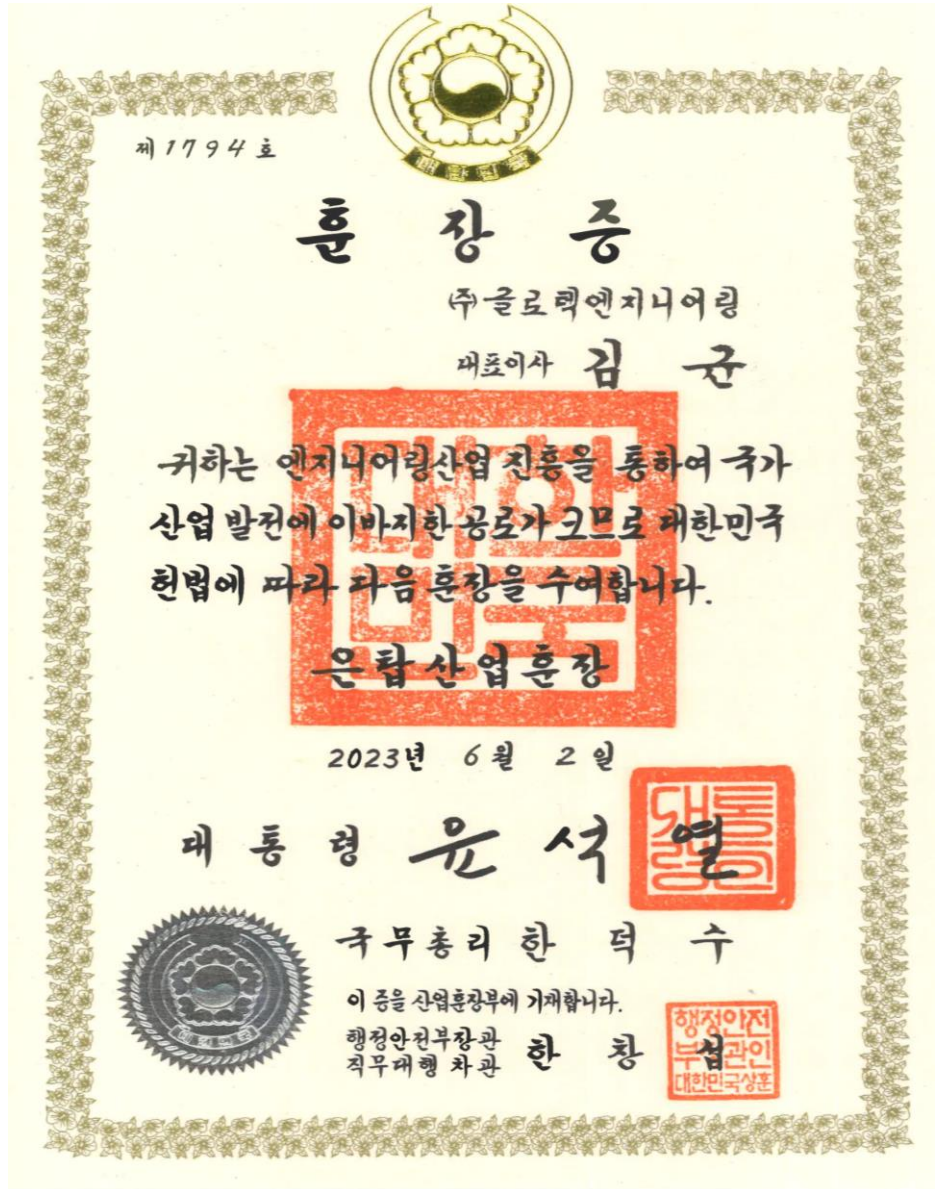 대한민국
제1794호
훈장증
(주)글로텍엔지니어링
대표이사 김균
귀하는 엔지니어링산업 진흥을 통하여 국가
산업 발전에 이바지한 공로가 크므로 대한민국
헌법에 따라 다음 훈장을 수여합니다.
은탑산업훈장
대한
민국
2023년 6월 2일
대통령 윤석열
대통
령의
국무총리 한덕수
이 증을 산업훈장부에 기재합니다.
행정안전부장관
직무대행 차관 한창섭
행정안전
부장관인
대한민국상훈
대한민국